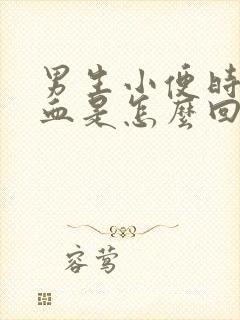 男生小便时
血是怎麼回
容莺